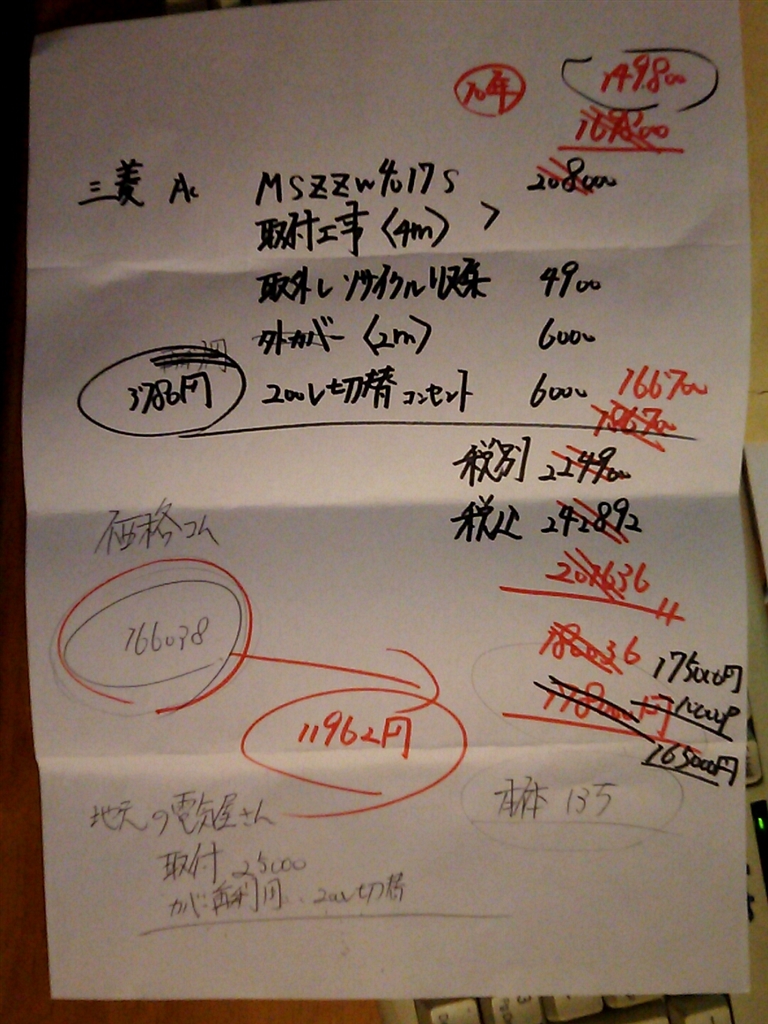 10年 149,800
169800
三菱 Ac MSZZW4017S 208000
取付工事〈4m〉
取外しリサイクル収集 4900
外カバー〈2m〉 6000
3786円 200V切替コンセント 6000 166700
186700
税別 224900
税込 242892
201636
価格コム
166038
188036 175000円
178000円
165000円
11962円
本体 135
地元の電気屋さん
取付 25000
カバー再利用、200V切替